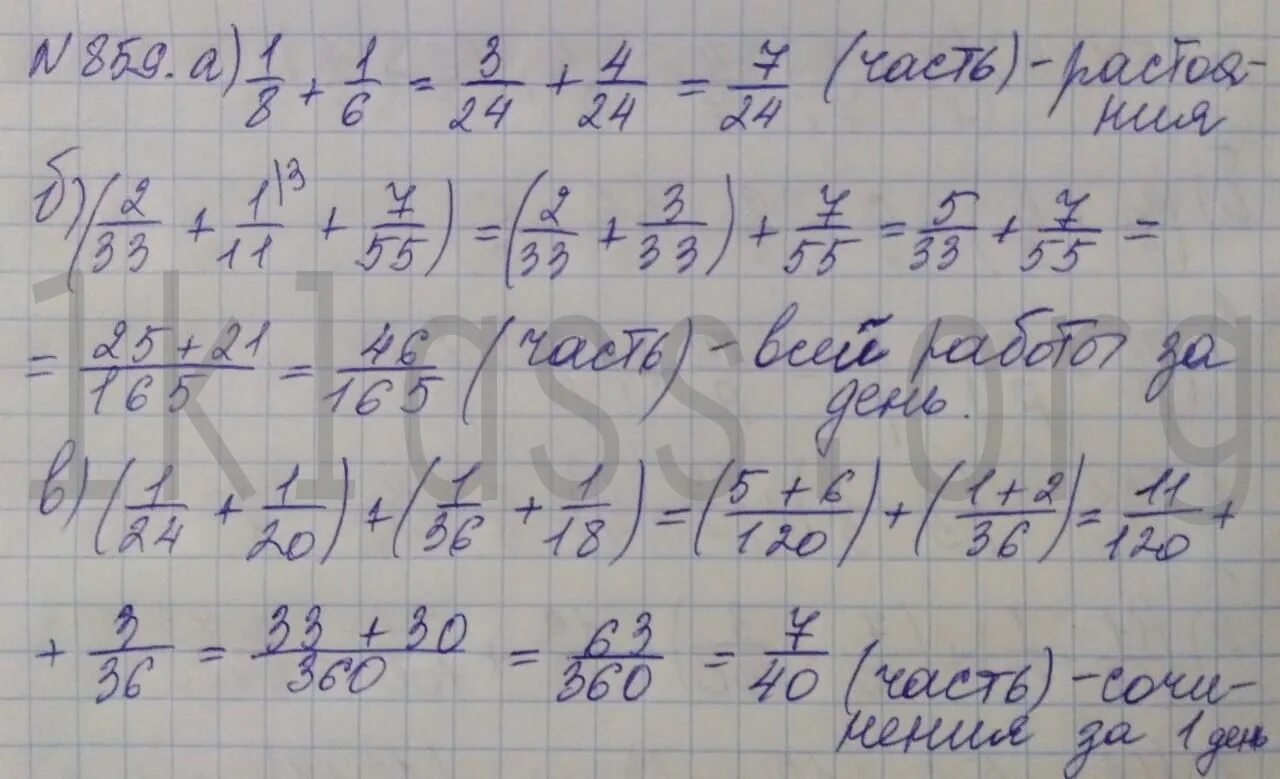 N 859. а) 1/8 + 1/6 = 3/24 + 4/24 = 7/24 (часть) - растоя-
ния
б) (2/33 + 1/11 |3 + 7/55) = (2/33 + 3/33) + 7/55 = 5/33 + 7/55 =
= (25 + 21)/165 = 46/165 (часть) - всей работы за
день.
в) (1/24 + 1/20) + (1/36 + 1/18) = ((5 + 6)/120) + ((1 + 2)/36) = 11/120 +
+ 3/36 = (33 + 30)/360 = 63/360 = 7/40 (часть) - сочи-
нения за 1 день
1klass.org